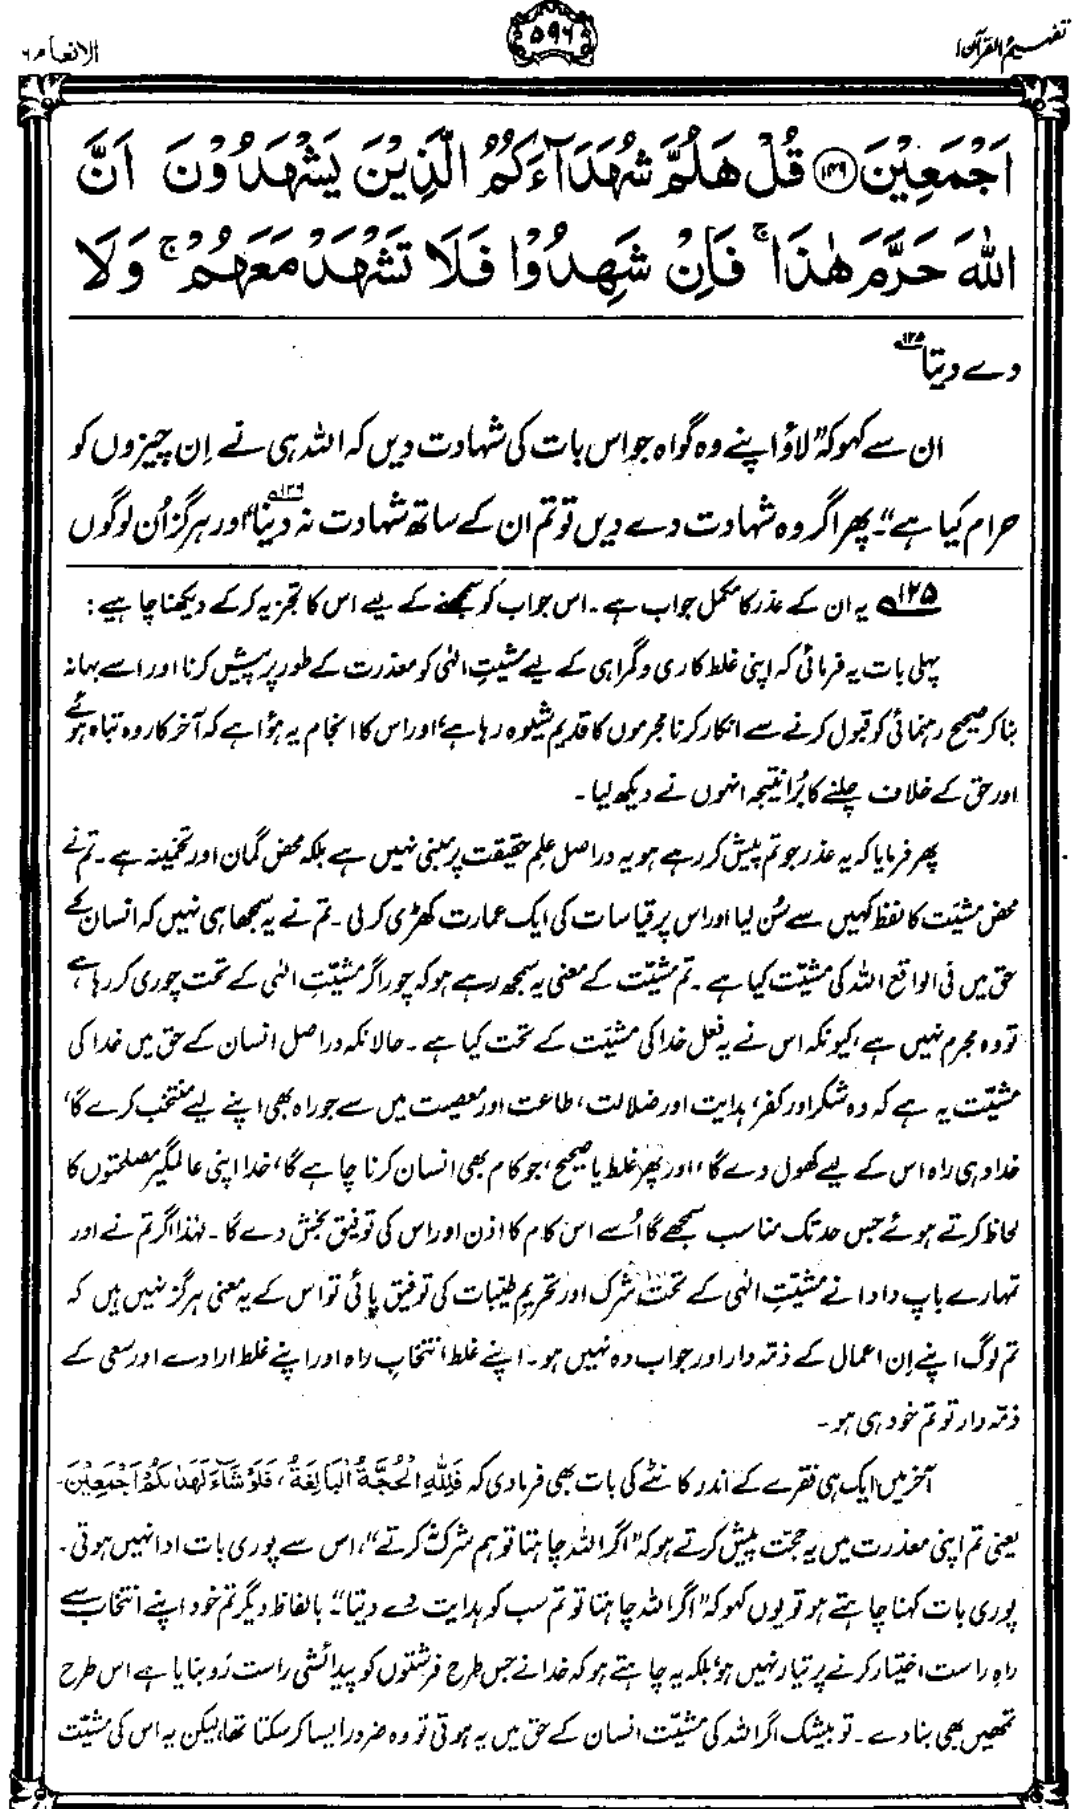 تفہیم القرآن ۱
۵۹۶
الانعام ۶
اَجْمَعِيْنَ ﴿۱۴۹﴾ قُلْ هَلُمَّ شُهَدَآءَكُمُ الَّذِيْنَ يَشْهَدُوْنَ اَنَّ
اللّٰهَ حَرَّمَ هٰذَا ۚ فَاِنْ شَهِدُوْا فَلَا تَشْهَدْ مَعَهُمْ ۚ وَلَا
دے دیتا ۱۲۵؎
ان سے کہو کہ ”لاؤ اپنے وہ گواہ جو اس بات کی شہادت دیں کہ اللہ ہی نے اِن چیزوں کو
حرام کیا ہے“۔ پھر اگر وہ شہادت دے دیں تو تم ان کے ساتھ شہادت نہ دینا ۱۲۶؎ اور ہرگز اُن لوگوں
۱۲۵؎ یہ ان کے عذر کا مکمل جواب ہے۔ اس جواب کو سمجھنے کے لیے اس کا تجزیہ کر کے دیکھنا چاہیے:
پہلی بات یہ فرمائی کہ اپنی غلط کاری و گمراہی کے لیے مشیّتِ الٰہی کو معذرت کے طور پر پیش کرنا اور اسے بہانہ
بنا کر صحیح رہنمائی کو قبول کرنے سے انکار کرنا مجرموں کا قدیم شیوہ رہا ہے، اور اس کا انجام یہ ہوا ہے کہ آخر کار وہ تباہ ہوئے
اور حق کے خلاف چلنے کا بُرا نتیجہ انہوں نے دیکھ لیا۔
پھر فرمایا کہ یہ عذر جو تم پیش کر رہے ہو یہ دراصل علمِ حقیقت پر مبنی نہیں ہے بلکہ محض گمان اور تخمینہ ہے۔ تم نے
محض مشیّت کا لفظ کہیں سے سُن لیا اور اس پر قیاسات کی ایک عمارت کھڑی کر لی۔ تم نے یہ سمجھا ہی نہیں کہ انسان کے
حق میں فی الواقع اللہ کی مشیّت کیا ہے۔ تم مشیّت کے معنی یہ سمجھ رہے ہو کہ چور اگر مشیّتِ الٰہی کے تحت چوری کر رہا ہے
تو وہ مجرم نہیں ہے، کیونکہ اس نے یہ فعل خدا کی مشیّت کے تحت کیا ہے۔ حالانکہ دراصل انسان کے حق میں خدا کی
مشیّت یہ ہے کہ وہ شکر اور کفر، ہدایت اور ضلالت، طاعت اور معصیت میں سے جو راہ بھی اپنے لیے منتخب کرے گا،
خدا وہی راہ اس کے لیے کھول دے گا، اور پھر غلط یا صحیح، جو کام بھی انسان کرنا چاہے گا، خدا اپنی عالمگیر مصلحتوں کا
لحاظ کرتے ہوئے جس حد تک مناسب سمجھے گا اُسے اس کام کا اذن اور اس کی توفیق بخش دے گا۔ لہٰذا اگر تم نے اور
تمہارے باپ دادا نے مشیّتِ الٰہی کے تحت شرک اور تحریمِ طیّبات کی توفیق پائی تو اس کے یہ معنی ہرگز نہیں ہیں کہ
تم لوگ اپنے اِن اعمال کے ذمّہ دار اور جواب دہ نہیں ہو۔ اپنے غلط انتخابِ راہ اور اپنے غلط ارادے اور سعی کے
ذمّہ دار تو تم خود ہی ہو۔
آخر میں ایک ہی فقرے کے اندر کانٹے کی بات بھی فرما دی کہ فَلِلّٰهِ الْحُجَّةُ الْبَالِغَةُ، فَلَوْ شَآءَ لَهَدٰىكُمْ اَجْمَعِيْنَ۔
یعنی تم اپنی معذرت میں یہ حجت پیش کرتے ہو کہ ”اگر اللہ چاہتا تو ہم شرک نہ کرتے“، اس سے پوری بات ادا نہیں ہوتی۔
پوری بات کہنا چاہتے ہو تو یوں کہو کہ ”اگر اللہ چاہتا تو تم سب کو ہدایت دے دیتا“۔ بالفاظ دیگر تم خود اپنے انتخاب سے
راہِ راست اختیار کرنے پر تیار نہیں ہو، بلکہ یہ چاہتے ہو کہ خدا نے جس طرح فرشتوں کو پیدائشی راست رَو بنایا ہے اس طرح
تمہیں بھی بنا دے۔ تو بیشک اگر اللہ کی مشیّت انسان کے حق میں یہ ہوتی تو وہ ضرور ایسا کر سکتا تھا، لیکن یہ اس کی مشیّت